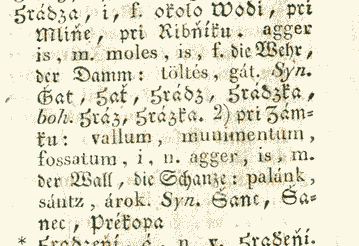 Hrádza, i, f. okolo Wodi, pri
Mliňe, pri Ribňíku. agger
is, m. moles, is, f. die Wehr,
der Damm: töltés, gát. Syn.
Gat, Hať, Hrádz, Hrádzka,
boh. Hráz, Hrázka. 2) pri Zám-
ku: vallum, munimentum,
fossatum, i, n. agger, is, m.
der Wall, die Schanze: palánk,
sántz, árok. Syn. Šanc, Ša-
nec, Prékopa
* Hradzeňí, á, n. v. Hraďeňí.